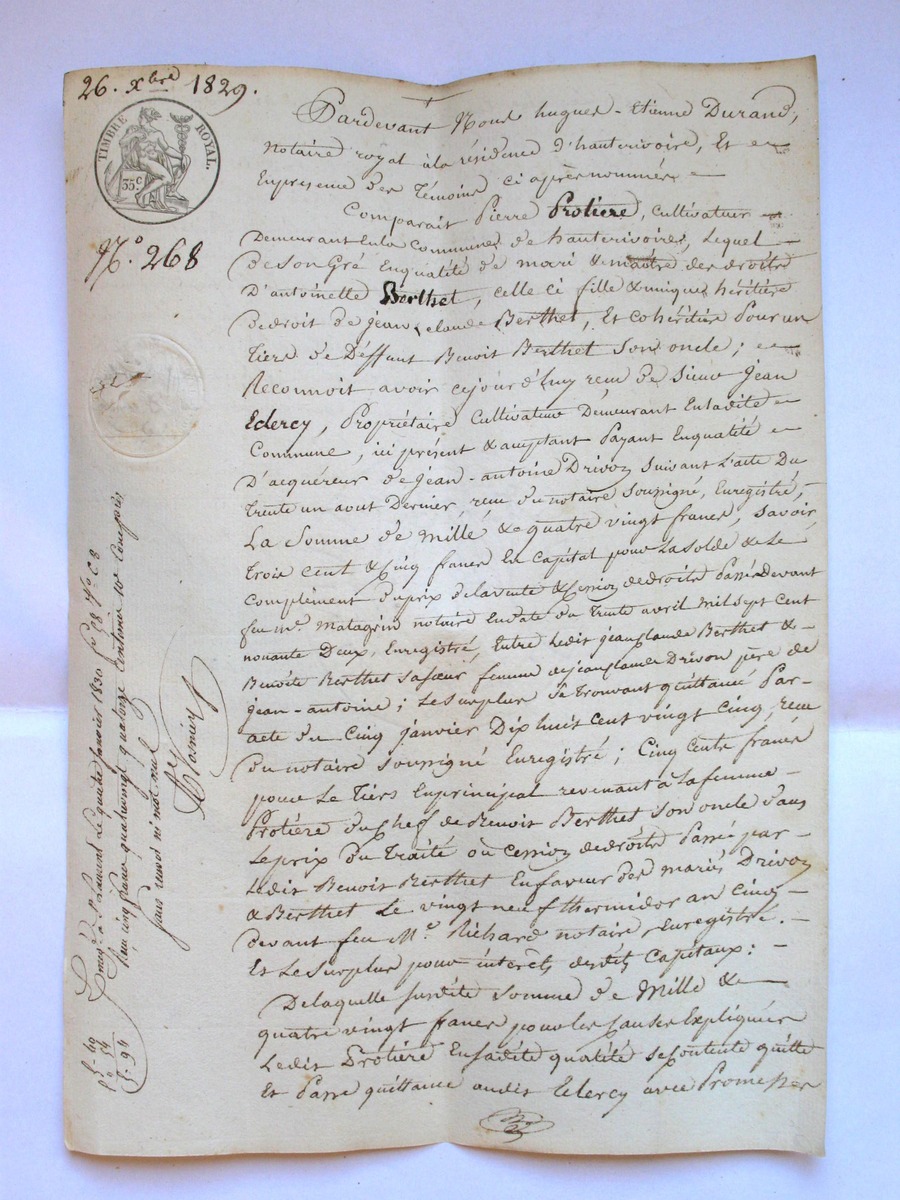 26. xbre 1829.
TIMBRE ROYAL.
35c
N.º 268
Pardevant Nous hugues-Etienne Durand,
notaire royal à la résidence d'hauterivoire, Et
Enpresence des Témoins ci après nommés
Comparait Pierre Protiere, cultivateur
Demeurant Enla Commune de hauterivoire, Lequel
de son Gré Enqualité de mari & maître des droits
D'antoinette Berthet, celle ci fille & unique héritière
dedroit de jean claude Berthet, Et cohéritière Pour un
Tiers de Déffunt Benoit Berthet Son oncle;
Reconnoit avoir cejourd'huy reçu de Sieur jean
Eclercy, Propriétaire Cultivateur Demeurant Enladite
Commune, ici présent & acceptant Payant Enqualité
D'acquéreur de jean-antoine Drivon Suivant L'acte Du
Trente un aout Dernier, reçu du notaire Soussigné, Enregistré,
La Somme de Mille & quatre vingt francs, Savoir
Trois Cent & Cinq francs En Capital pour La Solde & Le
Complément du prix delavente & Cession dedroits Passée Devant
feu Me. Matagrin notaire Endate du Trente avril Mil Sept Cent
nonante Deux, Enregistré, Entre Ledit jean claude Berthet &
Benoite Berthet sa sœur femme de jean claude Drivon père de
jean-antoine; Le Surplus Se trouvant quittancé Par
acte du Cinq janvier Dix huit Cent vingt Cinq, reçu
du notaire Soussigné Enregistré; Cinq Cents francs
pour Le Tiers Enprincipal revenant à La femme
Protière du Chef de Benoit Berthet Son oncle dans
Le prix du Traité ou Cession dedroits Passé par
Ledit Benoit Berthet En faveur des mariés Drivon
& Berthet Le vingt neuf thermidor an Cinq
devant feu Me. Richard notaire, Enregistré.
Et Le Surplus pour intérêts desdits Capitaux:
Delaquelle susdite Somme de Mille &
quatre vingt francs pour les Causes Expliquées
Ledit Protière Ensadite qualité Se Contente quitte
Et Passe quittance audit Eclercy avec Promesse
St Laurent Le quatre janvier 1830 fo 98 Vo C 8
Reçu cinq francs quatrevingt quatorze Centimes 10e Compris
sans renvoi ni mot nul
5-40
54
5-94